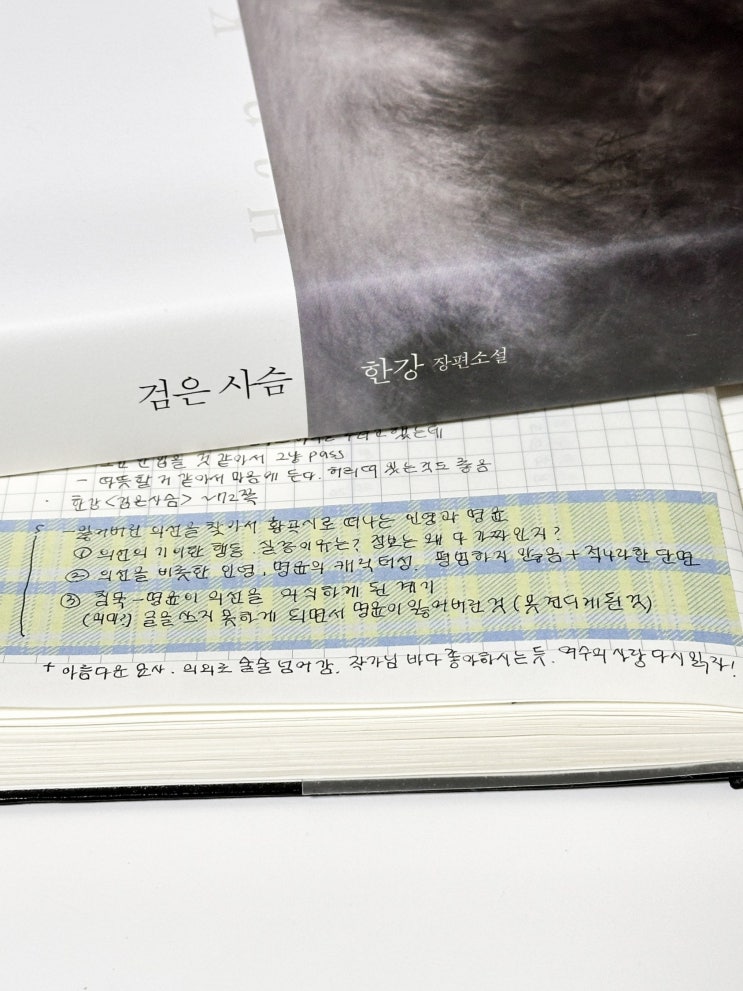 검은 사슴
한강 장편소설
것 같아서 그냥 pass
- 따뜻할 거 같아서 마음에 든다. 있는것도 좋음
· 한강 <검은사슴> ~172쪽
- 잃어버린 의선을 찾아서 황곡시로 떠나는 인영과 명윤
① 의선의 기이한 행동. 실종이유는? 정보는 왜 다 가짜인지?
② 의선을 비롯한 인영, 명윤의 캐릭터성. 평범하지 않음 + 적나라한 단면
③ 침묵 - 명윤이 의선을 의식하게 된 계기
글을 쓰지 못하게 되면서 명윤이 잃어버린 것 (못 견디게 된 것)
+ 아름다운 묘사. 의외로 술술 넘어감. 작가님 바다 좋아하시는 듯. 여수의 사랑 다시 읽자!